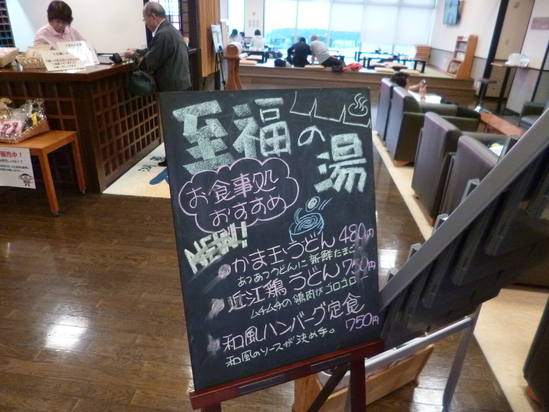 至福の湯
お食事処
おすすめ
NEW!
かま玉うどん 480円
あつあつうどんに新鮮たまご
近江鶏うどん 750円
ムチムチの鶏肉がゴロゴロ
和風ハンバーグ定食
750円
和風のソースが決め手。